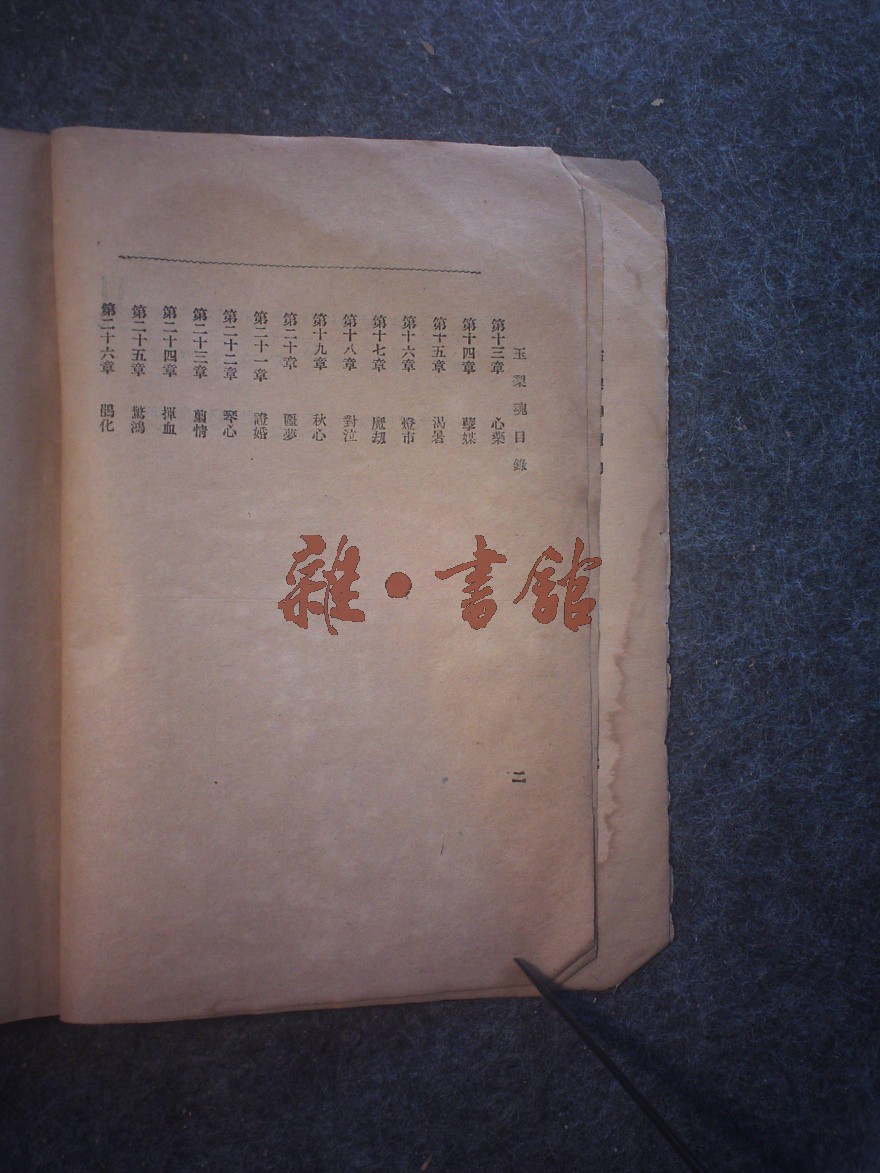 玉梨魂目錄
第十三章 心藥
第十四章 孽媒
第十五章 渴暑
第十六章 燈市
第十七章 魔劫
第十八章 對泣
第十九章 秋心
第二十章 噩夢
第二十一章 證婚
第二十二章 琴心
第二十三章 剪情
第二十四章 揮血
第二十五章 驚鴻
第二十六章 鵑化
二
雜•書館